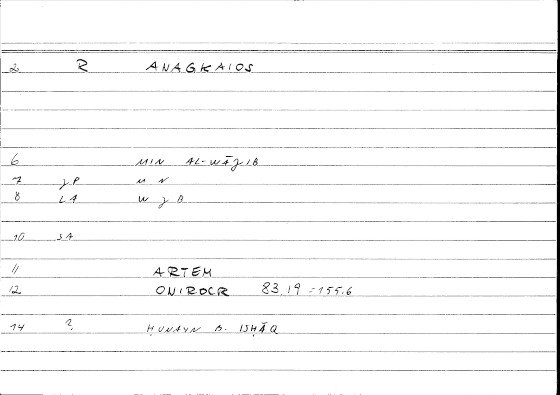 2 R ANAGKAIOS
6 MIN AL-WĀJIB
7 JP M N
8 LA W J B
10 SA
11 ARTEM
12 ONIROCR 83,19 = 155.6
14 ? ḤUNAYN B. ISḤĀQ